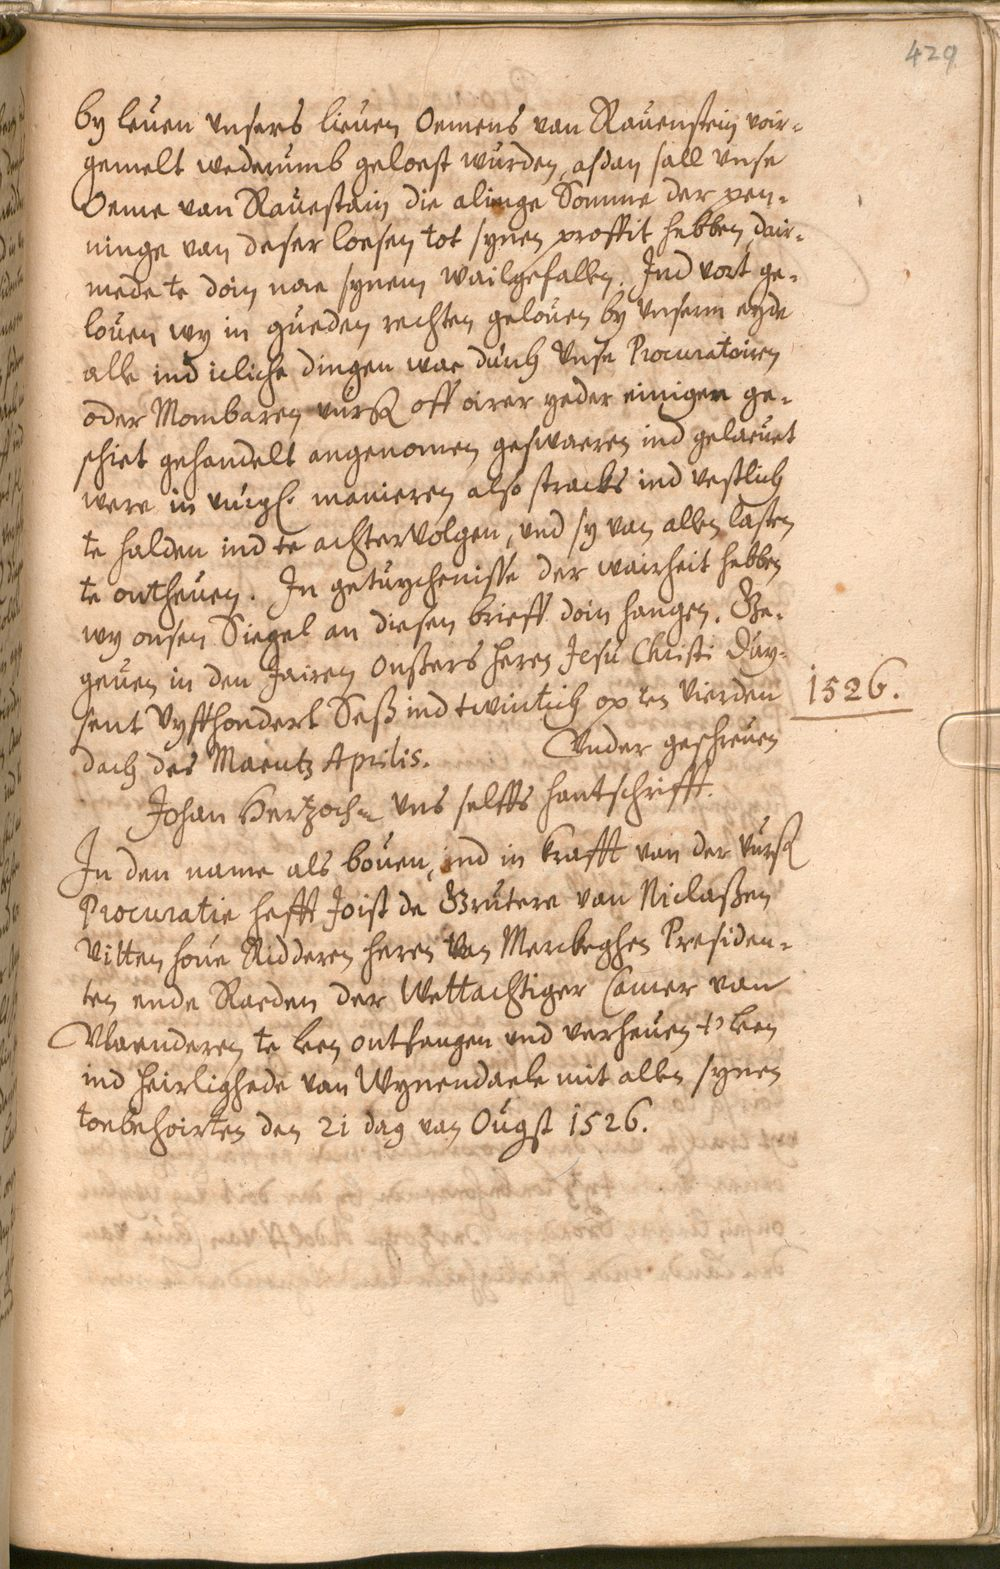 429
by leuen vnsers lieuen Oemens van Rauenstein voir-
gemelt wederumb geloest wurden, asdan sall vnse
Oeme van Rauestain die alinge Somme der pen-
ninge van deser loesen tot synen proffit hebben, dair-
mede te doin nae synem wailgefallen. Ind vort ge-
louen wy in gueden rechten gelouen by vnserm eyde
alle ind icliche dingen wae durch vnse Procuratoiren
oder Mombaren vurß off oirer yeder einigen ge-
schiet gehandelt angenomen geswaeren ind gelaeuet
were in vurgl. manieren also stracks ind vestlich
te halden ind te achtervolgen, vnd sy van allen lasten
te ontheuen. In getuychenisse der wairheit hebben
wy onsen Siegel an diesen brieff doin hangen. Ge-
geuen in den Jairen Onßers heren Jesu Christi Duy-
sent Vyffhondert Seß ind twintich op den Vierden
1526.
dach des Maentz Aprilis. Vnder geschreuen
Johan Hertzoch vns selffs hantschrifft.
In den name als bouen, ind in krafft van der vurß
Procuratie hefft Joist de Grutere van Niclaßen
Vitten houe Ridderen heren van Merckeghen Presiden-
ten ende Raeden der Wettachtiger Camer van
Vlaenderen te leen ontfangen vnd verheuen t' leen
ind heirlighede van Wynendaele mit allen synen
toebehoirten den 21 dag van Ougst 1526.